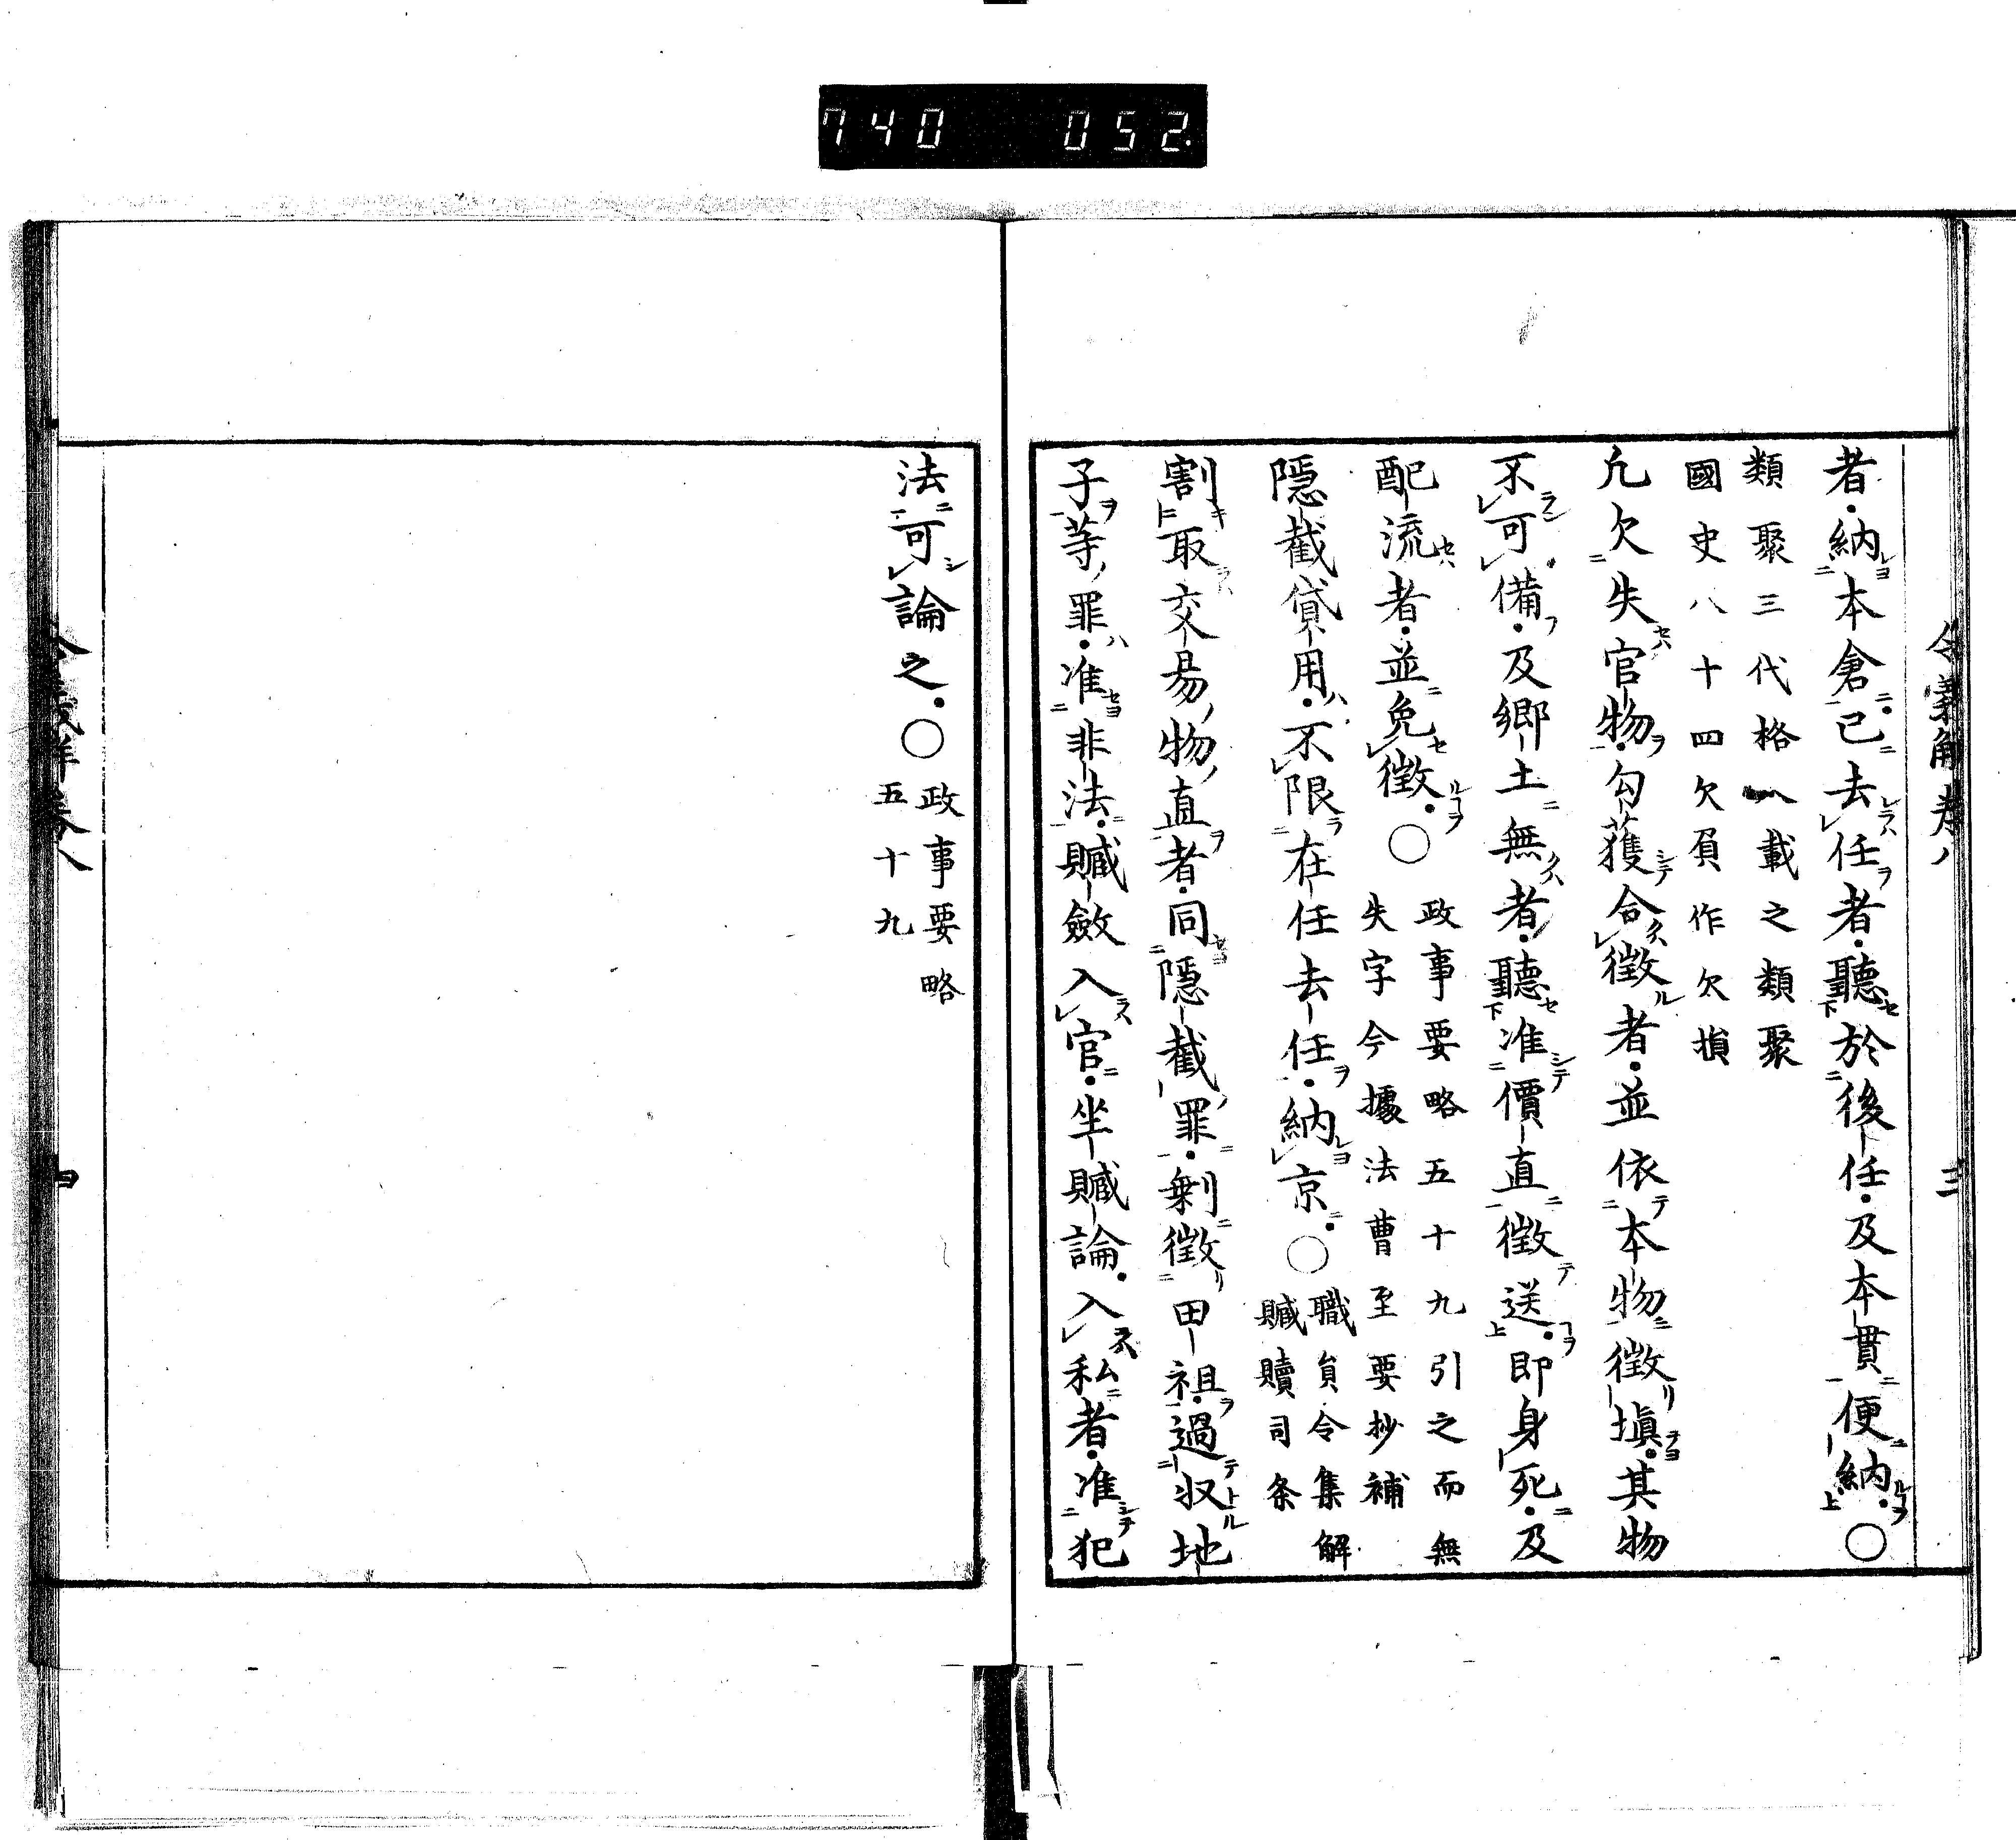 740 052
令義解巻八 三
者納本倉已去任者聽於後任及本貫便納〇
類聚三代格八載之類聚
國史八十四欠負作欠損
凢欠失官物勾獲合徴者並依本物徴塡其物
不可備及郷土無者聽准價直徴送即身死及
配流者並免徴〇
政事要略五十九引之而無
失字今據法曹至要抄補
隱截貸用不限在任去任納京〇
職員令集解
贓贖司条
割取交易物直者同隱截罪剰徴田租過収地
子等罪准非法贓斂入官坐贓論入私者准犯
法可論之〇
政事要略
五十九
四